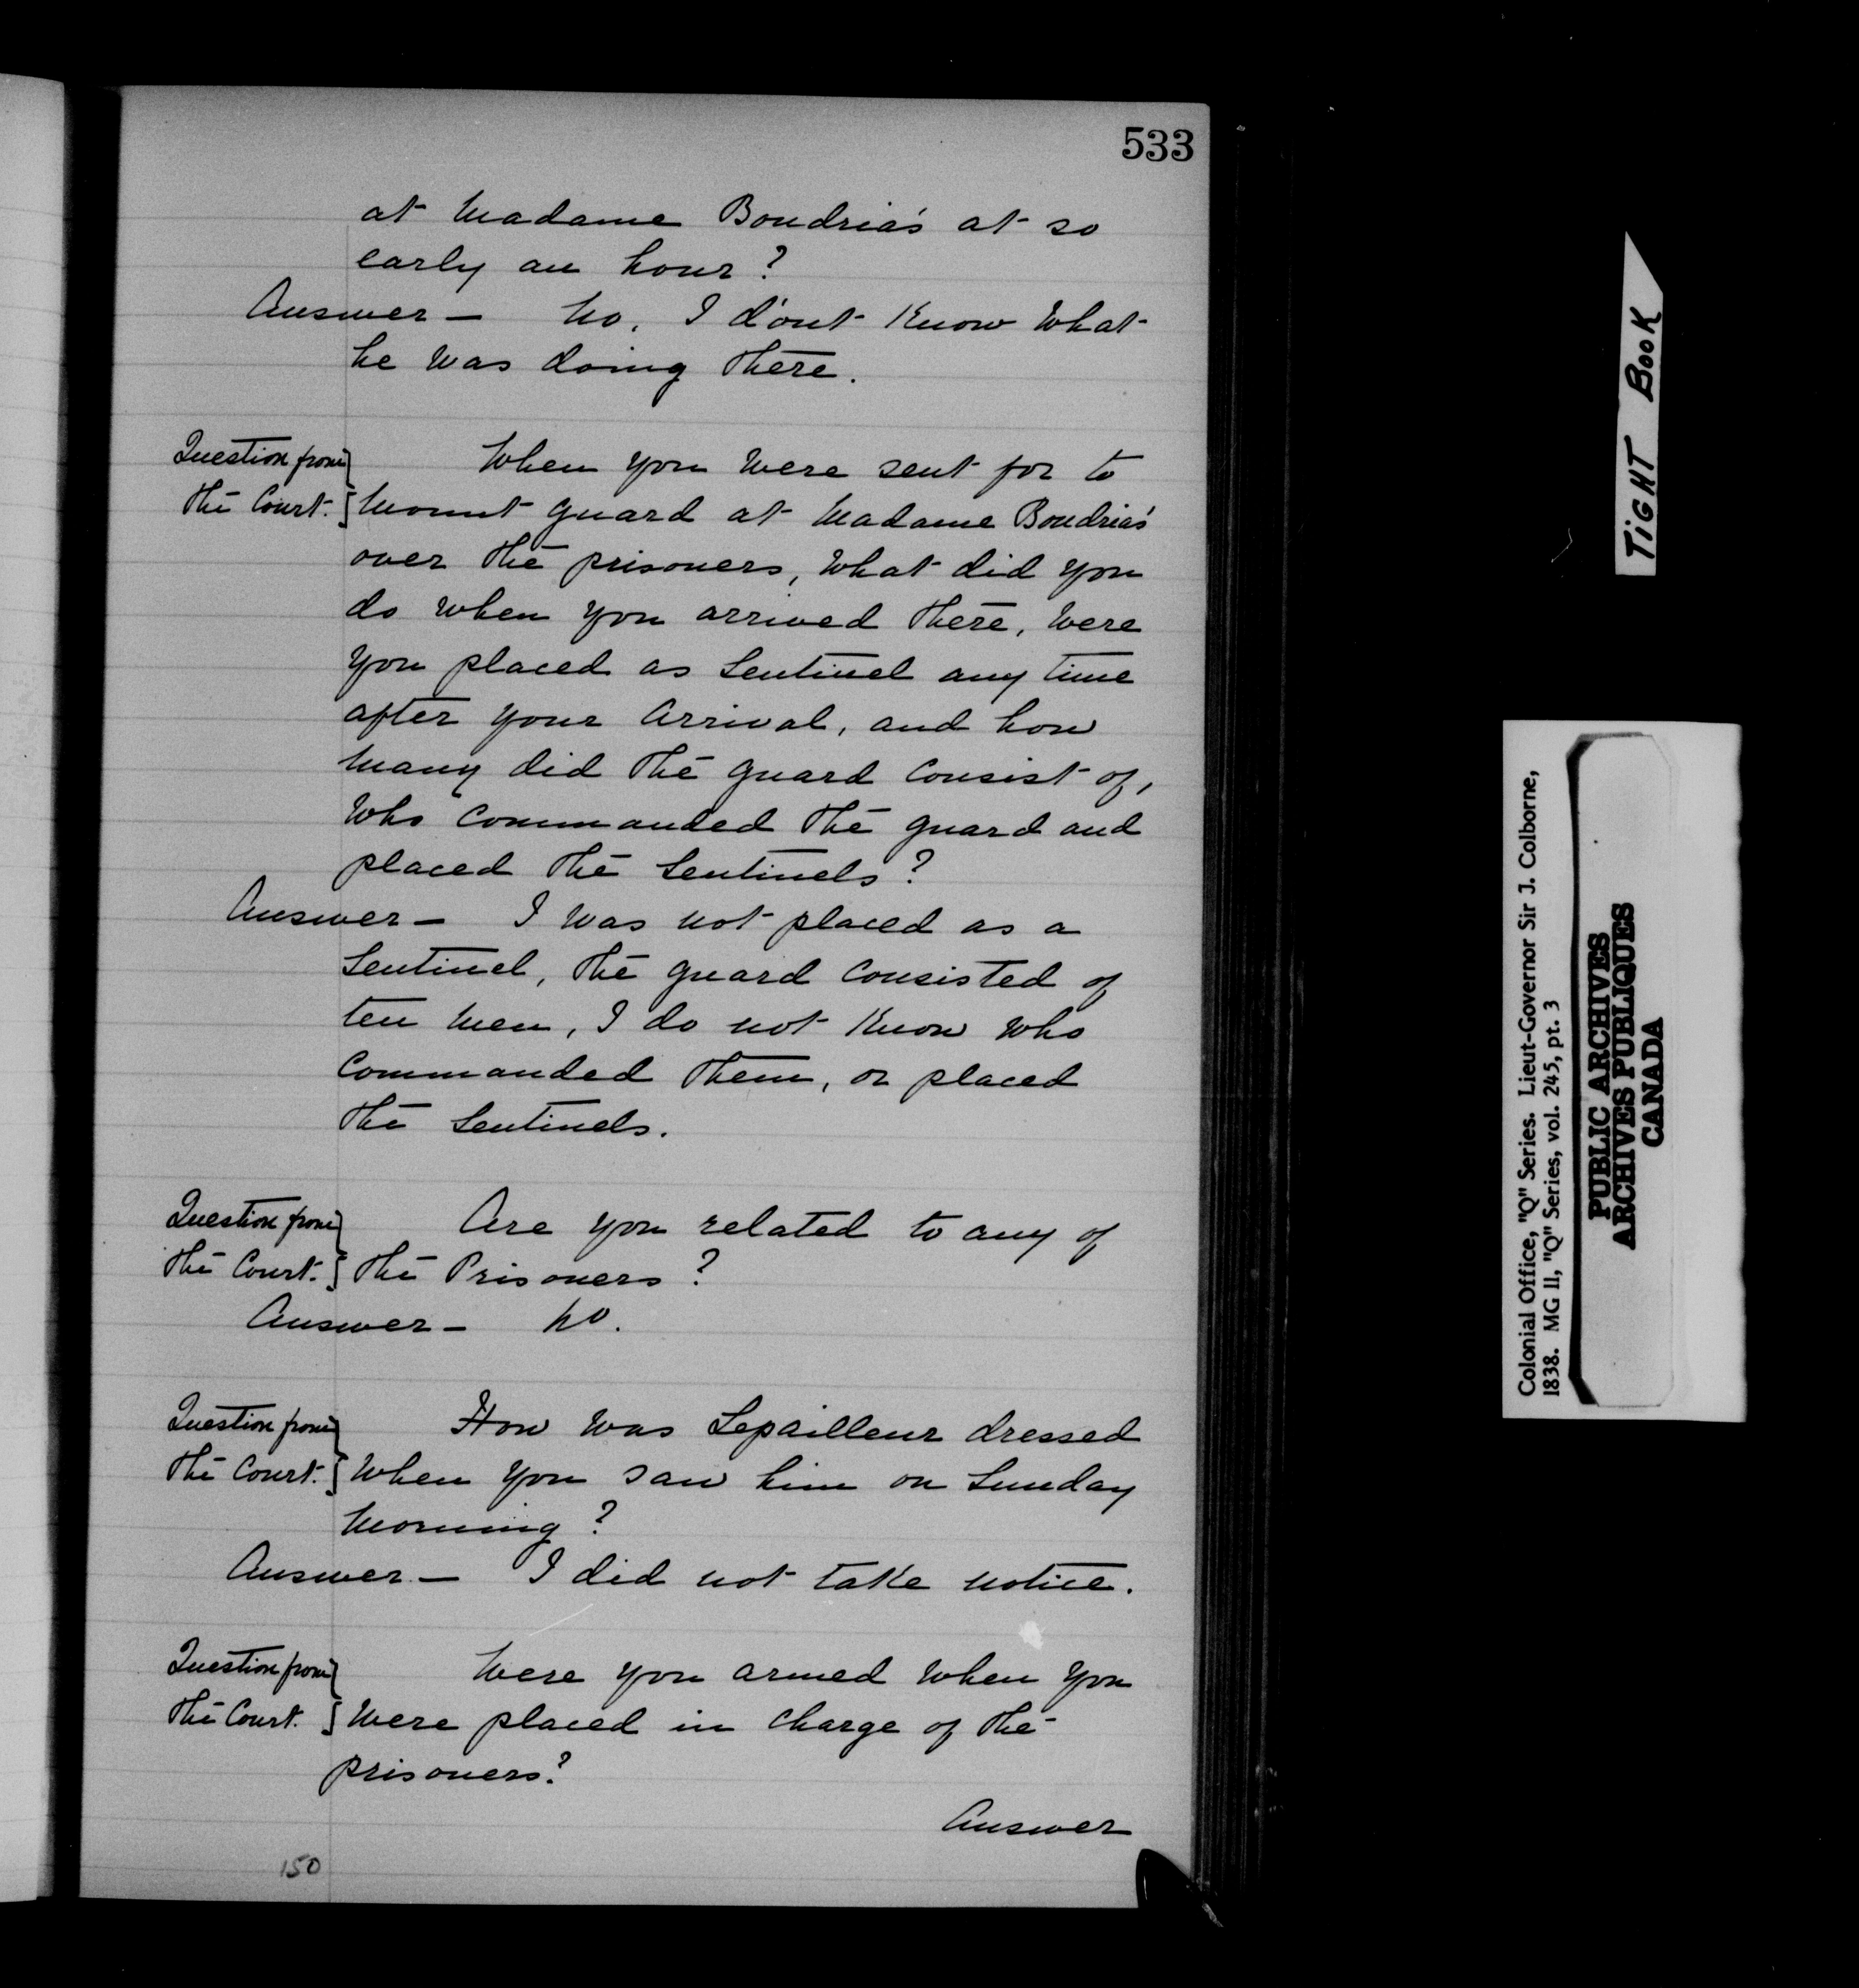 533
at Madame Boudria's at so
early an hour?
Answer — No, I d'ont Know What
he was doing there.
Question from
the Court.
When you were sent for to
Mount guard at Madame Boudria's
over the prisoners, What did you
do when you arrived there, Were
you placed as Sentinel any time
after your arrival, and how
Many did the guard Consist of,
Who Commanded the guard and
placed the Sentinels?
Answer — I was not placed as a
Sentinel, the guard Consisted of
ten Men, I do not Know Who
Commanded them, or placed
the Sentinels.
Question from
the Court.
Are you related to any of
the Prisoners?
Answer — No.
Question from
the Court.
How was Lepailleur dressed
When you saw him on Sunday
Morning?
Answer — I did not take notice.
Question from
the Court.
Were you armed When you
Were placed in Charge of the
prisoners?
Answer
150
TiGHT BooK
Colonial Office, "Q" Series. Lieut-Governor Sir J. Colborne,
1838. MG 11, "Q" Series, vol. 245, pt. 3
PUBLIC ARCHIVES
ARCHIVES PUBLIQUES
CANADA